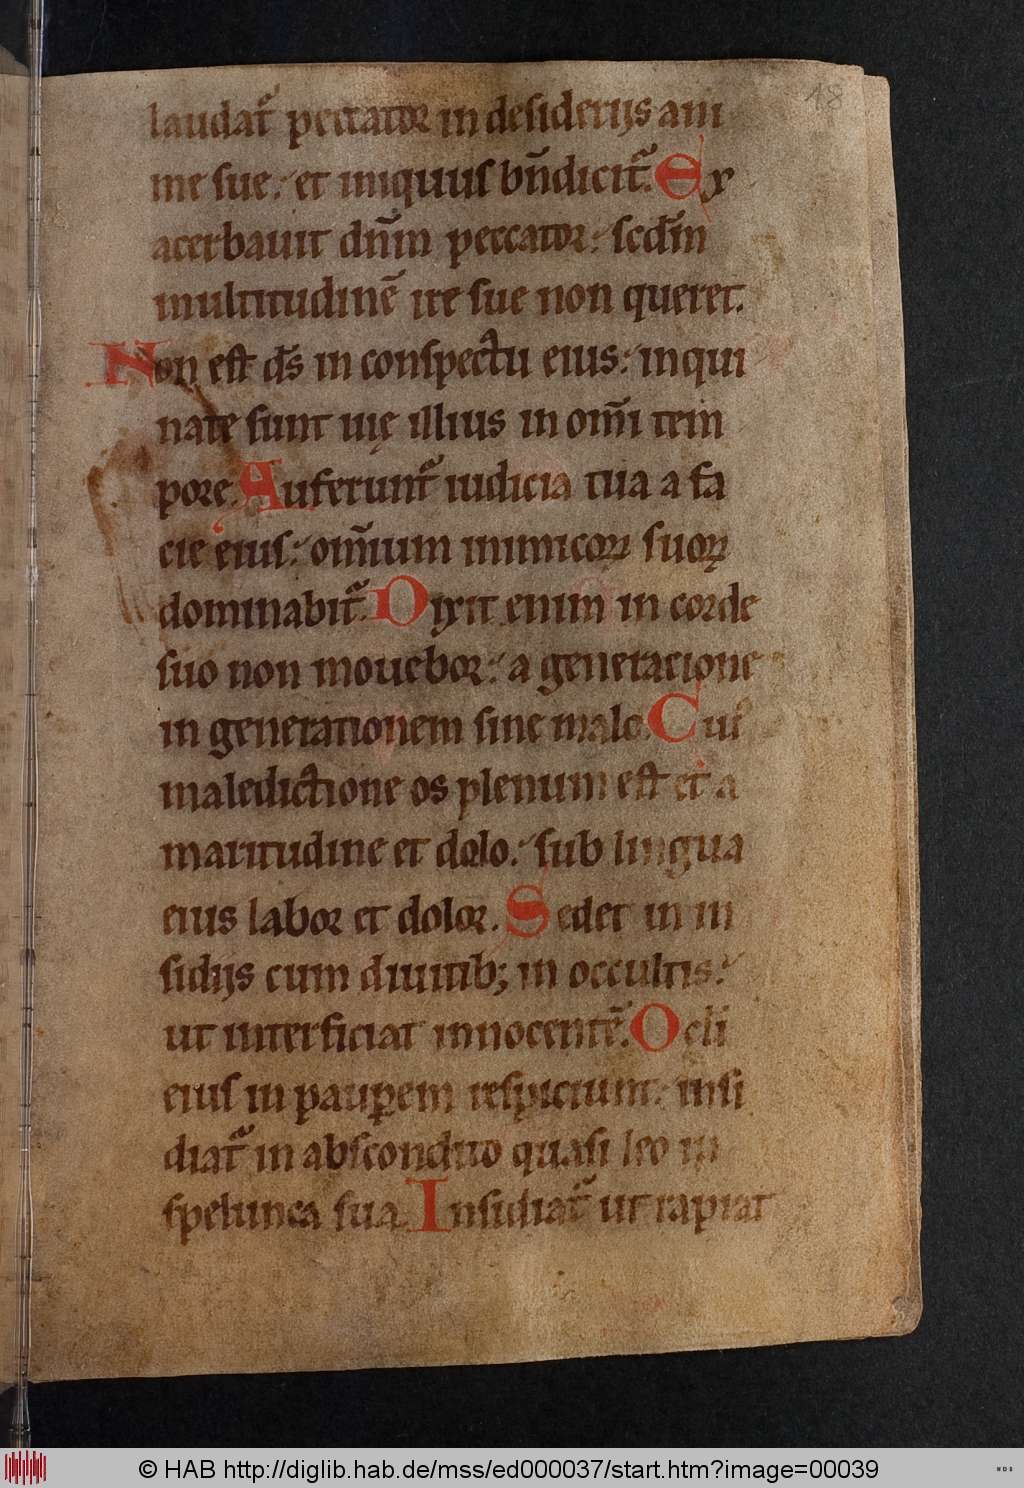 18
laudat᷑ peccator in desiderijs ani
me sue. et iniquus bn̄dicit᷑. Ex
acerbauit dn̄m peccator. scd̄m
multitudinē ire sue non queret.
Non est ds̄ in conspectu eius. inqui
nate sunt uię illius in om̄i tem
pore. Auferunt᷑ iudicia tua a fa
cie eius. om̄ium inimicoꝝ suoꝝ
dominabit᷑. Dixit enim in corde
suo non mouebor. a generacione
in generationem sine malo. Cui᷒
maledictione os plenum est et a
maritudine et dolo. sub lingua
eius labor et dolor. Sedet in in
sidijs cum diuitib; in occultis.
ut interficiat innocentē. Ocli
eius in pauꝑem respiciunt. insi
diat᷑ in abscondito quasi leo in
spelunca sua. Insidiat᷑ ut rapiat
© HAB http://diglib.hab.de/mss/ed000037/start.htm?image=00039